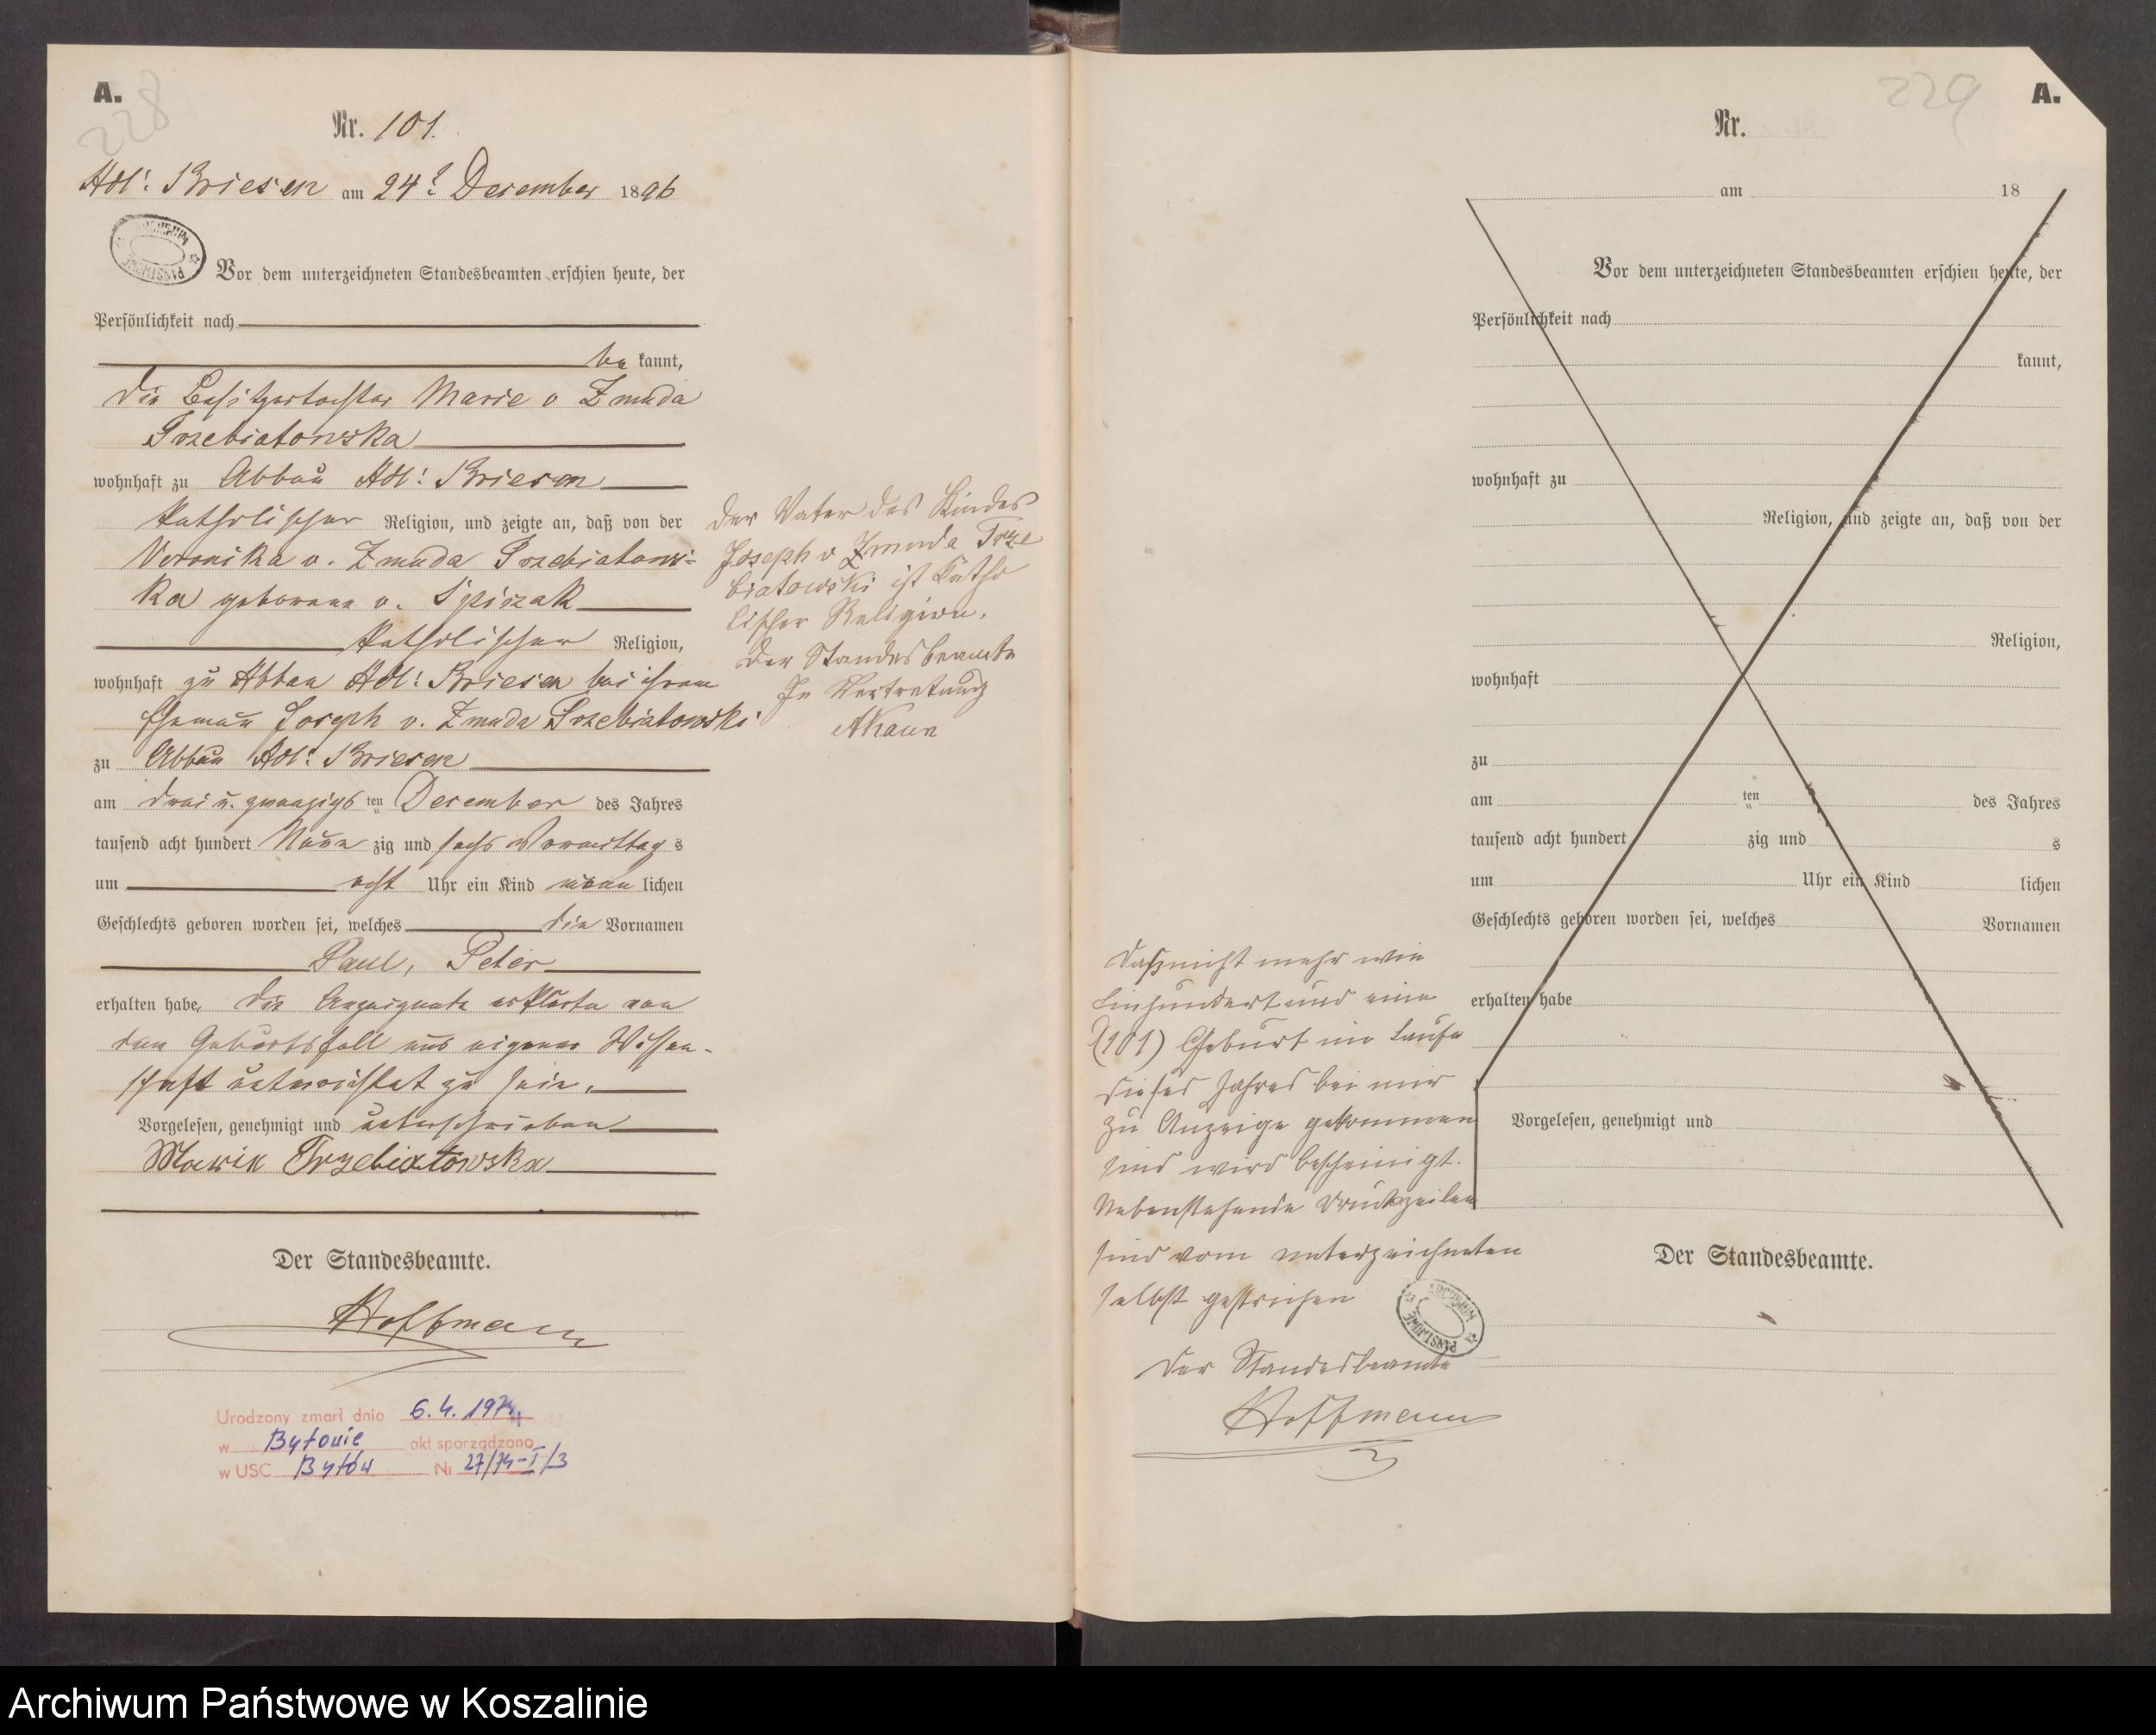 A.
228
Nr. 101.
Adl: Briesen am 24t. December 1896
Vor dem unterzeichneten Standesbeamten erschien heute, der
Persönlichkeit nach
be kannt,
die Besitzertochter Marie v Zmuda
Trzebiatowska
wohnhaft zu Abbau Adl: Briesen
katholischer Religion, und zeigte an, daß von der
Veronika v. Zmuda Trzebiatows-
ka geborene v. Spiczak
katholischer Religion,
wohnhaft zu Abbau Adl: Briesen bei ihrem
Ehemann Joseph v. Zmuda Trzebiatowski
zu Abbau Adl: Briesen
am drei u. zwanzigs ten December des Jahres
tausend acht hundert Neun zig und sechs Vormittag s
um acht Uhr ein Kind männ lichen
Geschlechts geboren worden sei, welches die Vornamen
Paul, Peter
erhalten habe, die Anzeigende erklärte von
dem Geburtsfall aus eigener Wissen-
schaft unterrichtet zu sein.
Vorgelesen, genehmigt und unterschrieben
Marie Trzebiatowska
Der Standesbeamte.
Hoffmann
Urodzony zmarł dnia 6.4.1974.
w Bytowie akt sporządzono
w USC Bytów Nr 27/74-I/3
Der Vater des Kindes
Joseph v Zmuda Trze
biatowski ist katho
lischer Religion.
Der Standesbeamte
In Vertretung
229
A.
Nr.
am 18
Vor dem unterzeichneten Standesbeamten erschien heute, der
Persönlichkeit nach
kannt,
wohnhaft zu
Religion, und zeigte an, daß von der
Religion,
wohnhaft
zu
am ten des Jahres
tausend acht hundert zig und s
um Uhr ein Kind lichen
Geschlechts geboren worden sei, welches Vornamen
erhalten habe
Vorgelesen, genehmigt und
Der Standesbeamte.
Daß nicht mehr wie
Einhundert und eine
(101) Geburt im Laufe
dieses Jahres bei mir
zu Anzeige gekommen
sind wird bescheinigt.
Nebenstehende Druckzeilen
sind vom unterzeichneten
selbst gestrichen
Der Standesbeamte
Hoffmann
Archiwum Państwowe w Koszalinie